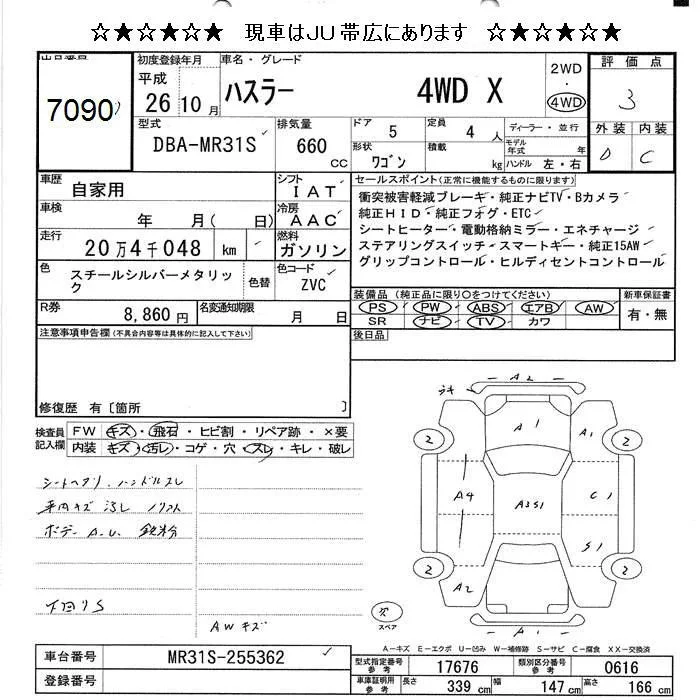 ☆★☆★☆★☆ 現車はJU帯広にあります ☆★☆★☆★☆
初度登録年月 車名・グレード 2WD 評価点
平成 26 10 月 ハスラー 4WD X 4WD 3
7090
型式 DBA-MR31S 排気量 660 CC
ドア 5 定員 4 人 ディーラー・並行 外装 内装
形状 ワゴン 積載 kg モデル年式 年 D C
ハンドル 左・右
車歴 自家用 シフト IAT
セールスポイント(正常に機能するものに限ります)
車検 年 月( 日) 冷房 AAC
衝突被害軽減ブレーキ・純正ナビTV・Bカメラ
純正HID・純正フォグ・ETC
走行 20万4千048 km 燃料 ガソリン
シートヒーター・電動格納ミラー・エネチャージ
ステアリングスイッチ・スマートキー・純正15AW
グリップコントロール・ヒルディセントコントロール
色 スチールシルバーメタリック 色替 色コード ZVC
R券 8,860円 名変通知期限 月 日
装備品(純正品に限り○をつけてください) 新車保証書
PS PW ABS エアB AW 有・無
SR ナビ TV カワ
注意事項申告欄(不具合内容等は具体的に記入して下さい) 後日品
修復歴 有〔箇所 〕
検査員記入欄 FW キズ・飛石・ヒビ割・リペア跡・×要
内装 キズ・汚レ・コゲ・穴・スレ・キレ・破レ
シートヘタリ、ハンドルスレ
ボデーA.U. 鉄粉
下回りS
AWキズ
A2
A1 A1
2 2
A4 A3S1 C1
S1
2 2
A2
A1
スペア
A-キズ E-エクボ U-凹み W-補修跡 S-サビ C-腐食 XX-交換済
車台番号 MR31S-255362 型式指定番号 参考 17676 類別区分番号 参考 0616
登録番号 車庫証明用 参考 長さ 339 cm 幅 147 cm 高さ 166 cm